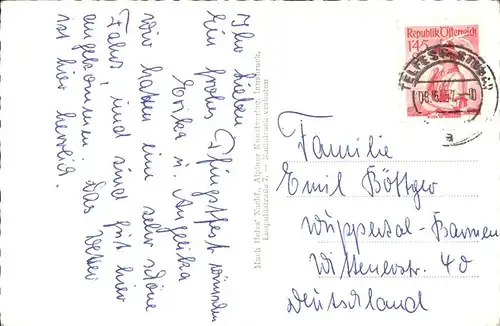 Ihr Lieben
Ein frohes Pfingstfest wünschen
Erika u. Angelika
Wir hatten eine sehr schöne
Fahrt und sind gut hier
angekommen Das Wetter
ist hier herrlich.
Much Heiss' Nachf., Alpiner Kunstverlag, Innsbruck,
Leopoldstraße 7. — Nachdruck verboten
Republik Österreich
1S45
08.6.57.-00
a
Familie
Emil Böttger
Wuppertal-Barmen
Wittenerstr. 40
Deutschland